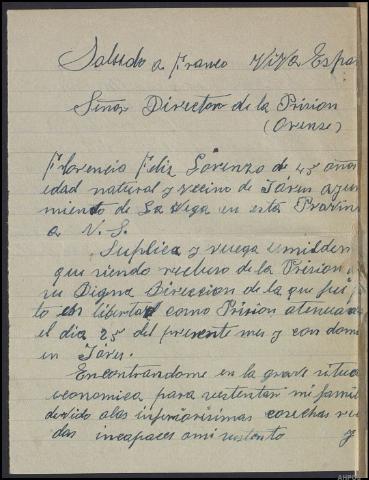 Saludo a Franco ViVa Espa
Señor Director de la Prision
(Orense)
Florencio Feliz Lorenzo de 45 años
edad natural y vecino de Járes ayun
miento de La Vega en esta Provin
a V. S.
Suplica y ruega umildem
que siendo recluso de la Prision
su Digna Direccion de la que fui p
to en libertad como Prision atenuad
el dia 25 del presente mes y con dom
en Járes.
Encontrandome en la grave situa
economica para sustentar mi famil
devido alas inferiorisimas cosechas
das incapaces ami sustento y
AHPOU